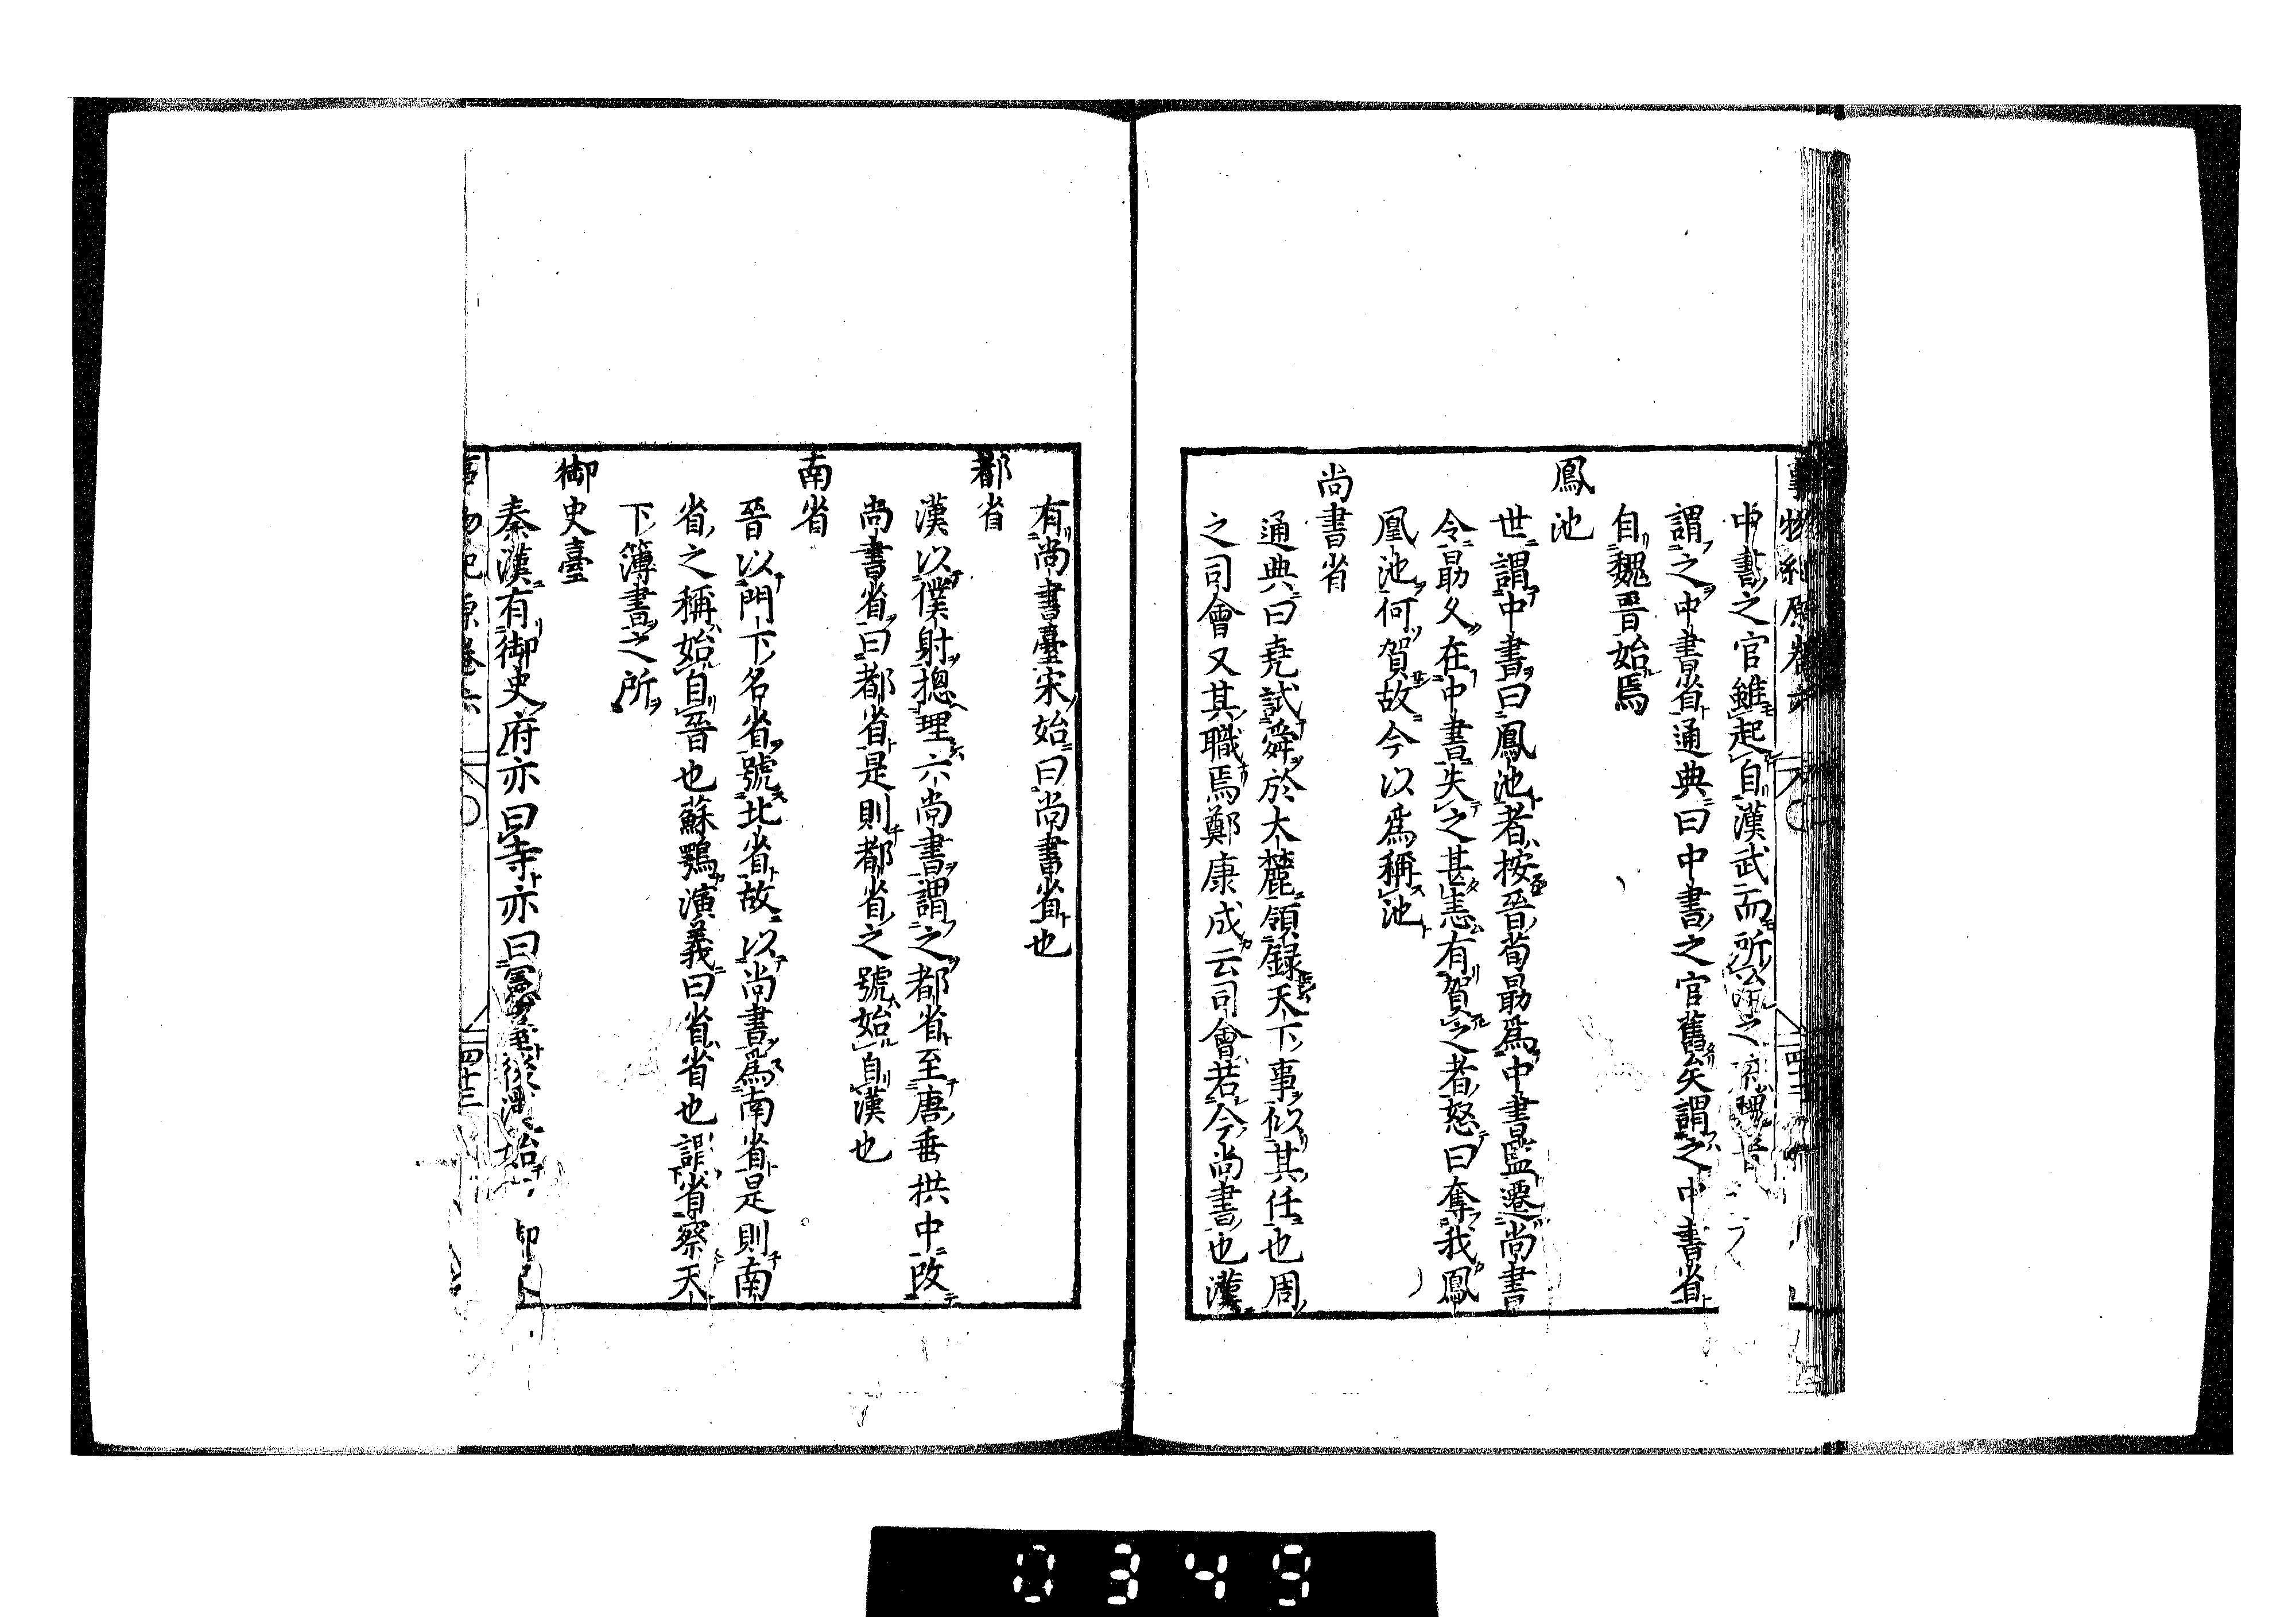 中書之官雖起自漢武而所
謂之中書省通典曰中書之官舊矣謂之中書省
自魏晋始焉
鳳池
世謂中書曰鳳池者按晉荀勗爲中書監遷尚書
令勗久在中書失之甚恚有賀之者怒曰奪我鳳
凰池何賀故今以爲稱池
尚書省
通典曰堯試舜於大麓領録天下事似其任也周
之司會又其職焉鄭康成云司會若今尚書也漢
有尚書臺宋始曰尚書省也
都省
漢以僕射揔理六尚書謂之都省至唐垂拱中改
尚書省曰都省是則都省之號始自漢也
南省
晉以門下名省號北省故以尚書爲南省是則南
省之稱始自晉也蘇鶚演義曰省省也謂省察天
下簿書之所
御史臺
秦漢有御史府亦曰寺亦曰憲臺後漢始
四十三
0349